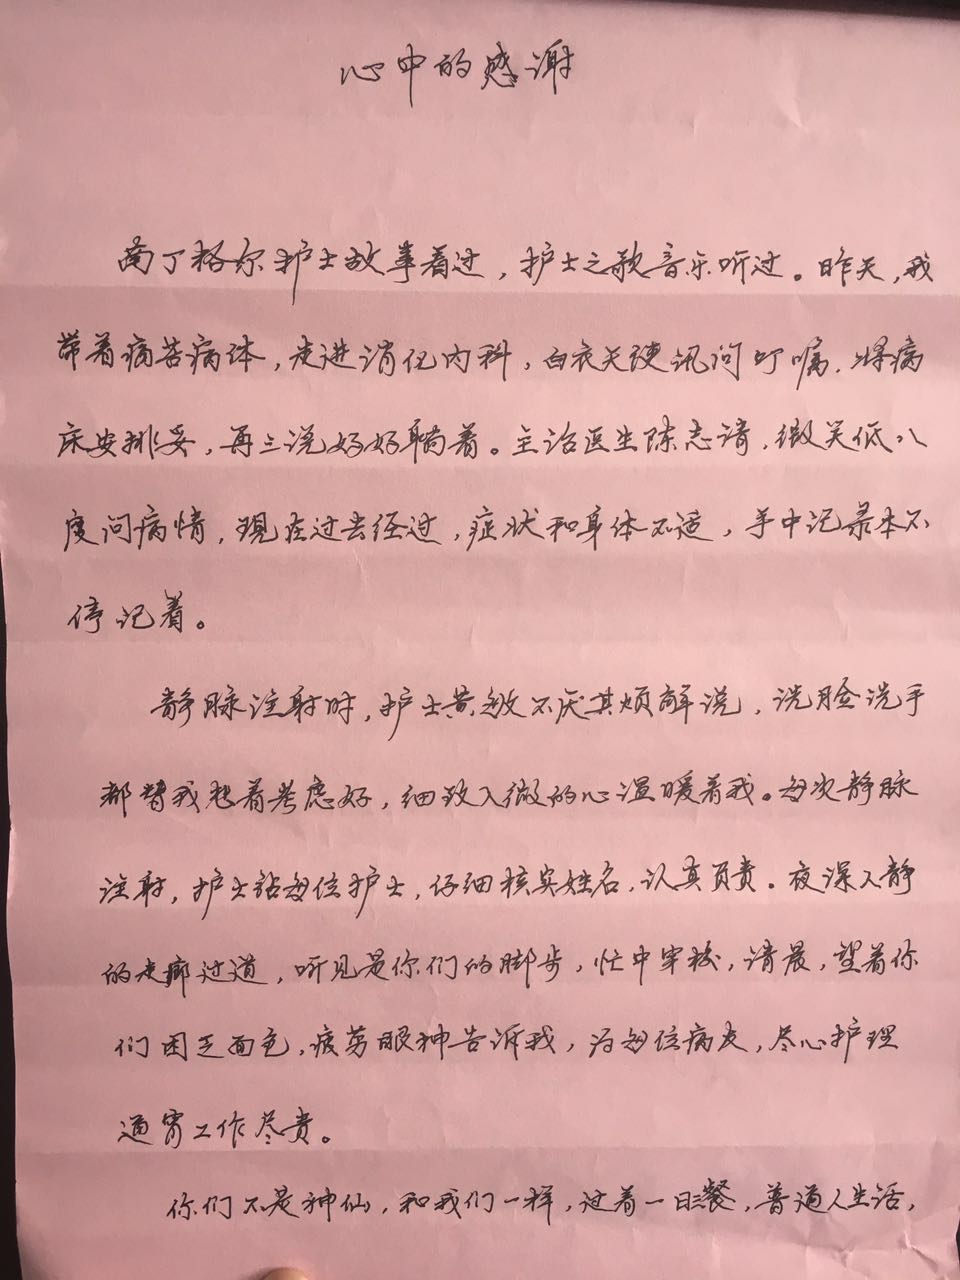 心中的感谢
南丁格尔护士故事看过，护士之歌音乐听过。昨天，我
带着痛苦病体，走进消化内科，白衣天使讯问叮嘱，将病
床安排妥，再三说好好躺着。主治医生陈志清，微笑低八
度问病情，现在过去经过，症状和身体不适，手中记录本不
停记着。
静脉注射时，护士黄敏不厌其烦解说，洗脸洗手
都替我想着考虑好，细致入微的心温暖着我。每次静脉
注射，护士站每位护士，仔细核实姓名，认真负责。夜深人静
的走廊过道，听见是你们的脚步，忙中穿梭，清晨，望着你
们困乏面色，疲劳眼神告诉我，为每位病友，尽心护理
通宵工作尽责。
你们不是神仙，和我们一样，过着一日三餐，普通人生活，